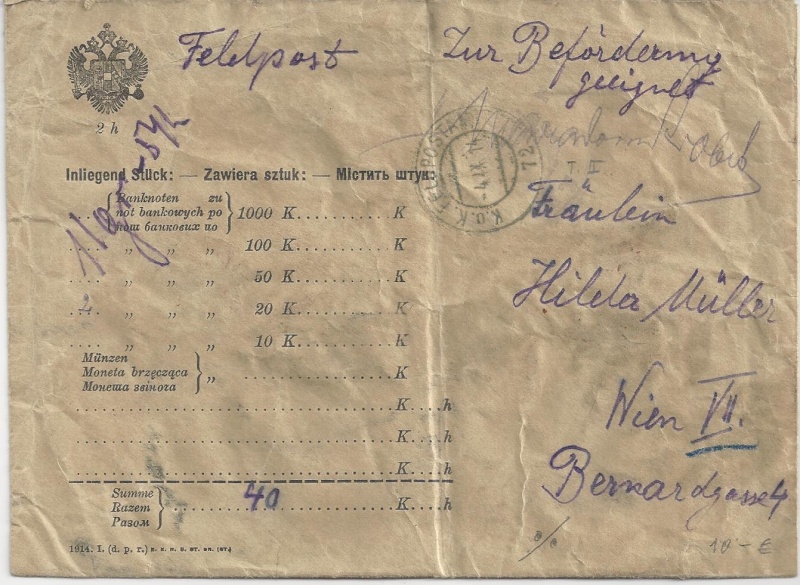 Feldpost
Zur Beförderung
geeignet
2 h
K.u.K. FELDPOSTAMT 72
T. II
Inliegend Stück: — Zawiera sztuk: — Мiстить штук:
Banknoten zu
not bankowych po
нот банкових по
1000 K. K
„ „ „ 100 K. K
„ „ „ 50 K. K
2 „ „ „ 20 K. K
„ „ „ 10 K. K
Münzen
Moneta brzęcząca
Монета звінога
„ K
K h
K h
K h
Summe
Razem
Разом
40 K h
1914. I. (d. p. r.)
Fräulein
Hilda Müller
Wien VII.
Bernardgasse 4
%
10.- €